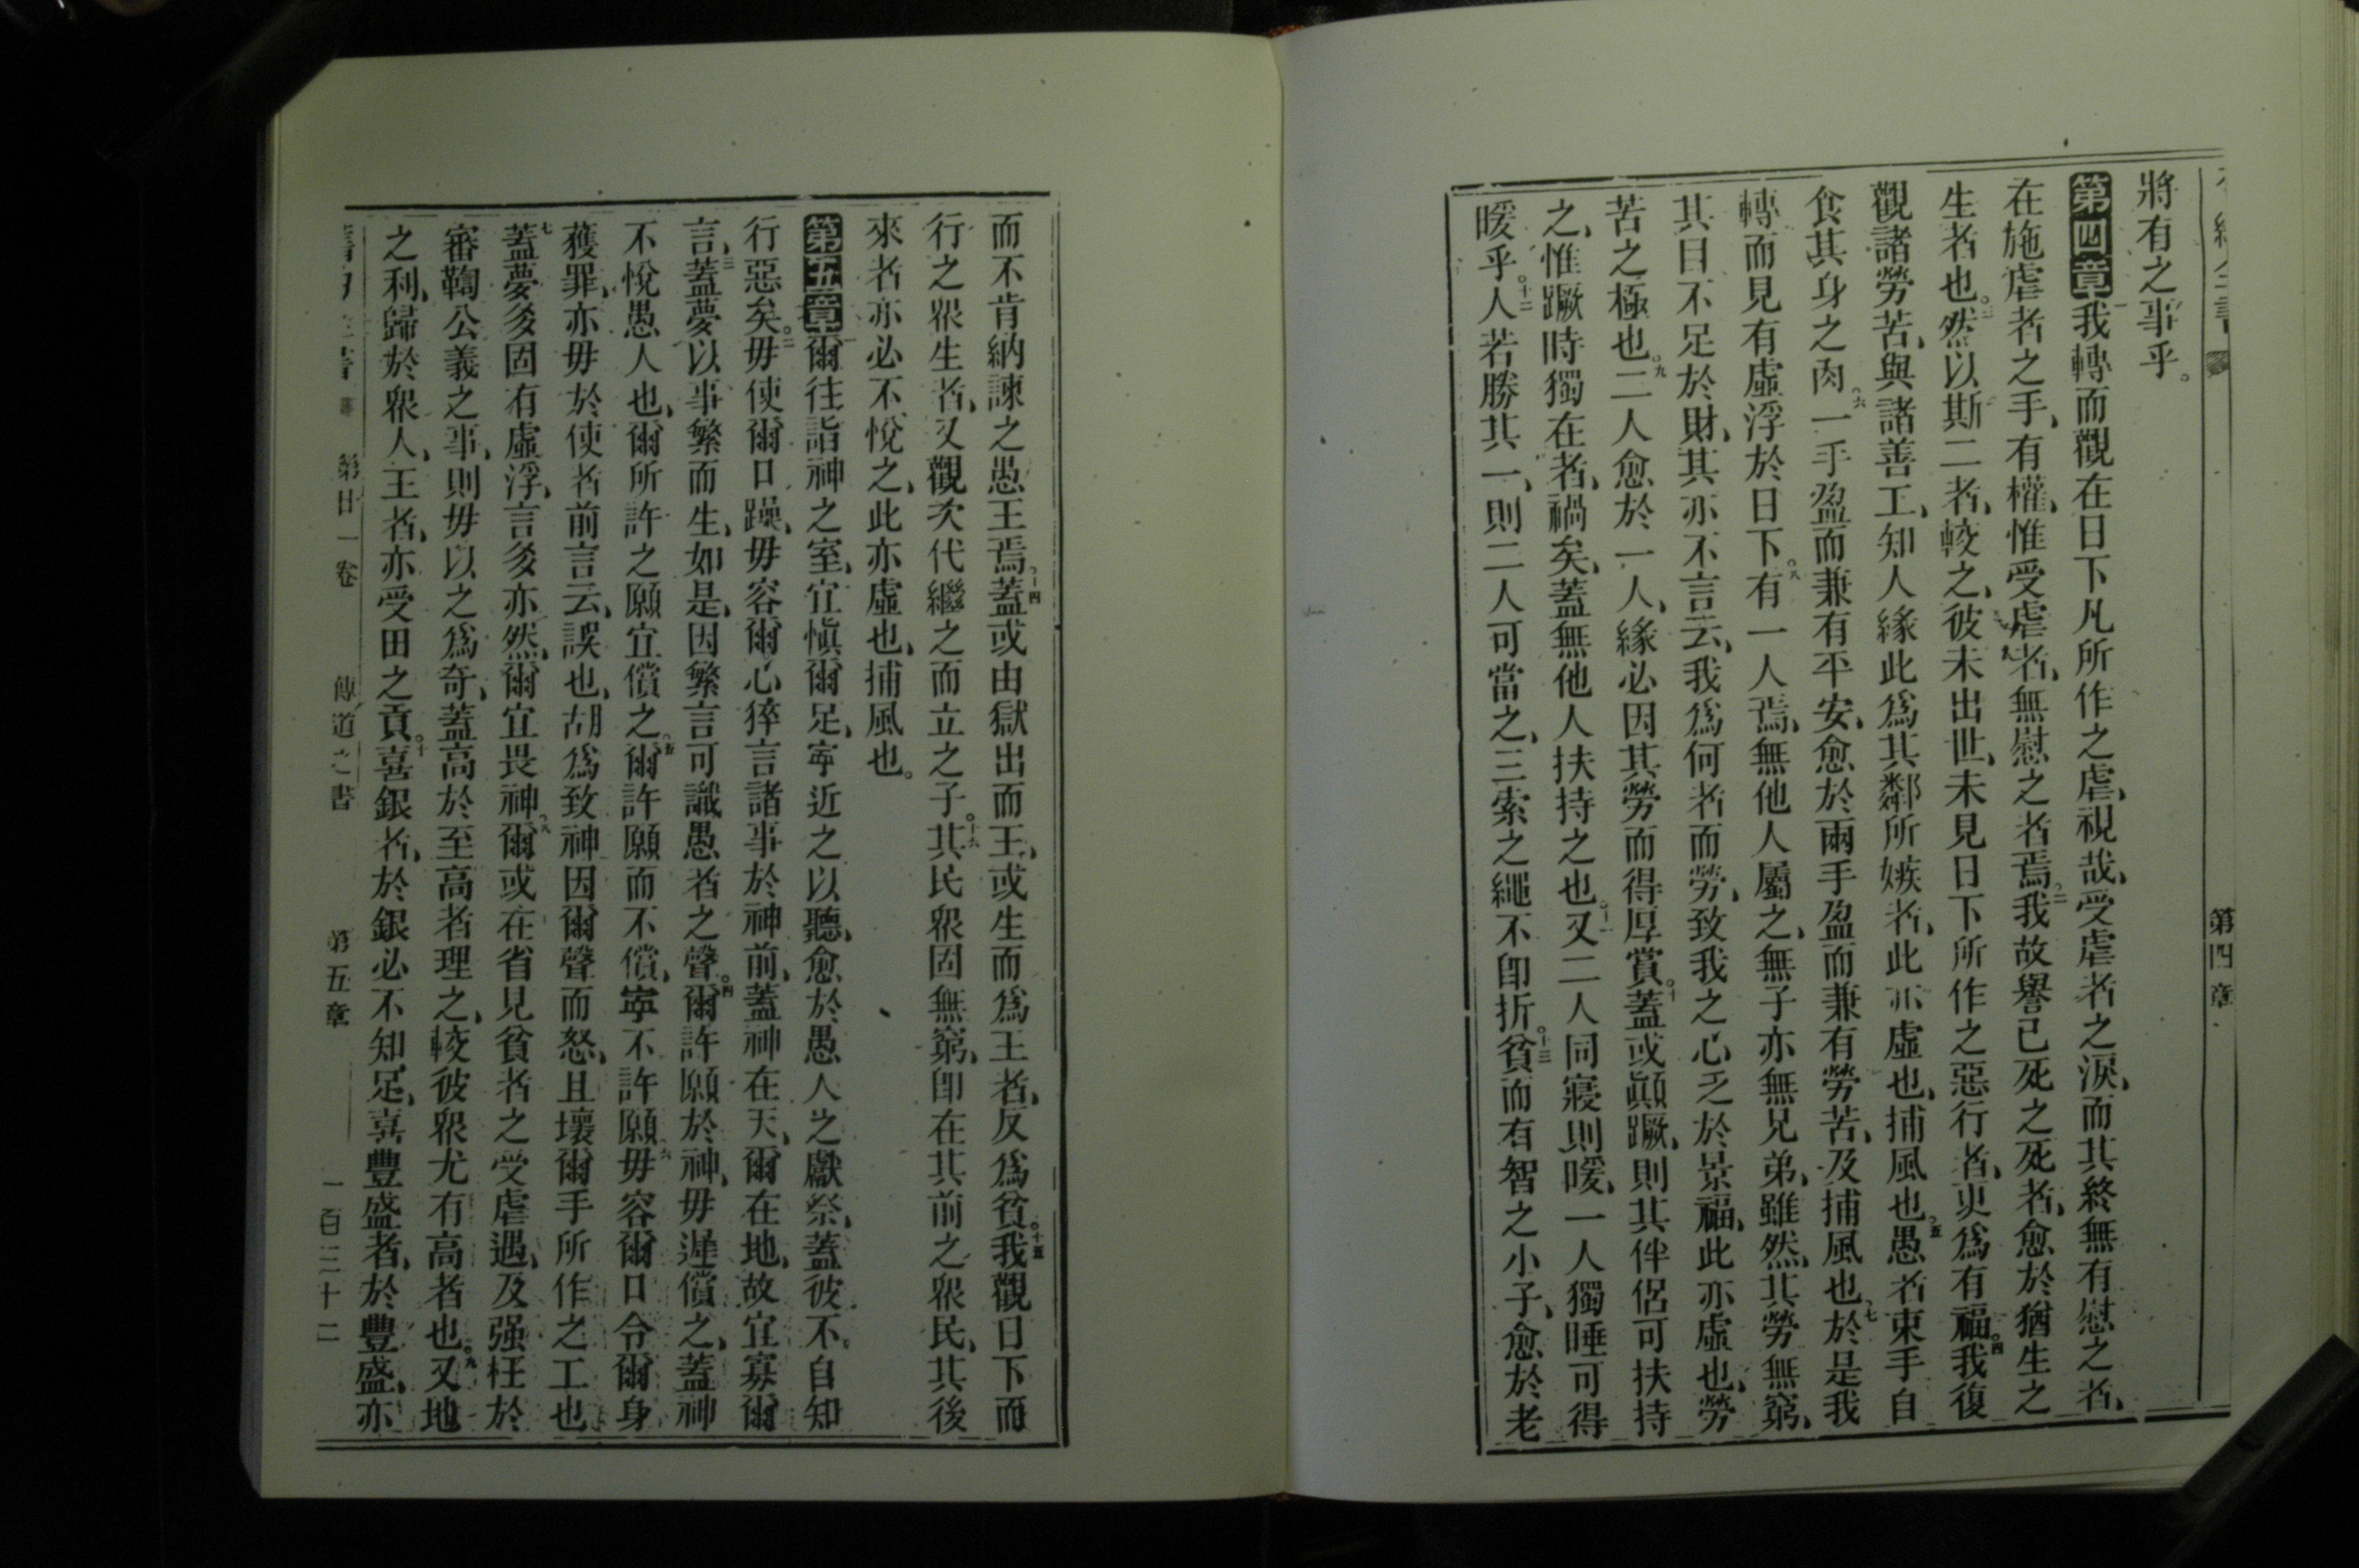 第四章
將有之事乎。
第四章一我轉而觀在日下凡所作之虐、視哉、受虐者之淚、而其終無有慰之者、
在施虐者之手、有權、惟受虐者、無慰之者焉。二我故譽已死之死者、愈於猶生之
生者也。三然以斯二者、較之、彼未出世、未見日下所作之惡行者、更爲有福。四我復
觀諸勞苦、與諸善工、知人緣此爲其鄰所嫉者、此亦虛也、捕風也。五愚者束手自
食其身之肉。六一手盈而兼有平安、愈於兩手盈而兼有勞苦、及捕風也。七於是我
轉而見有虛浮於日下。八有一人焉、無他人屬之、無子亦無兄弟、雖然、其勞無窮、
其目不足於財、其亦不言云、我爲何者而勞、致我之心乏於景福、此亦虛也、勞
苦之極也。九二人愈於一人、緣必因其勞而得厚賞。十蓋或顚蹶、則其伴侶可扶持
之、惟蹶時獨在者、禍矣、蓋無他人扶持之也。十一又二人同寢則暖、一人獨睡可得
暖乎。十二人若勝其一、則二人可當之、三索之繩不卽折。十三貧而有智之小子、愈於老
而不肯納諫之愚王焉。十四蓋或由獄出而王、或生而爲王者、反爲貧。十五我觀日下而
行之眾生者、又觀次代繼之而立之子。十六其民眾固無窮、卽在其前之眾民、其後
來者亦必不悅之、此亦虛也、捕風也。
第五章一爾往詣神之室、宜愼爾足、寧近之以聽、愈於愚人之獻祭、蓋彼不自知
行惡矣。二毋使爾口躁、毋容爾心猝言諸事於神前、蓋神在天、爾在地、故宜寡爾
言、三蓋夢以事繁而生、如是、因繁言可識愚者之聲。四爾許願於神、毋遲償之、蓋神
不悅愚人也、爾所許之願宜償之。五爾許願而不償、寧不許願。六毋容爾口令爾身
獲罪、亦毋於使者前言云、誤也、胡爲致神因爾聲而怒、且壞爾手所作之工也
七蓋夢多固有虛浮、言多亦然、爾宜畏神。八爾或在省見貧者之受虐遇、及强枉於
審鞫公義之事、則毋以之爲奇、蓋高於至高者理之、較彼眾尤有高者也。九又地
之利、歸於眾人、王者、亦受田之貢。十喜銀者、於銀必不知足、喜豐盛者、於豐盛、亦
第廿一卷 傳道之書 第五章 一百三十二